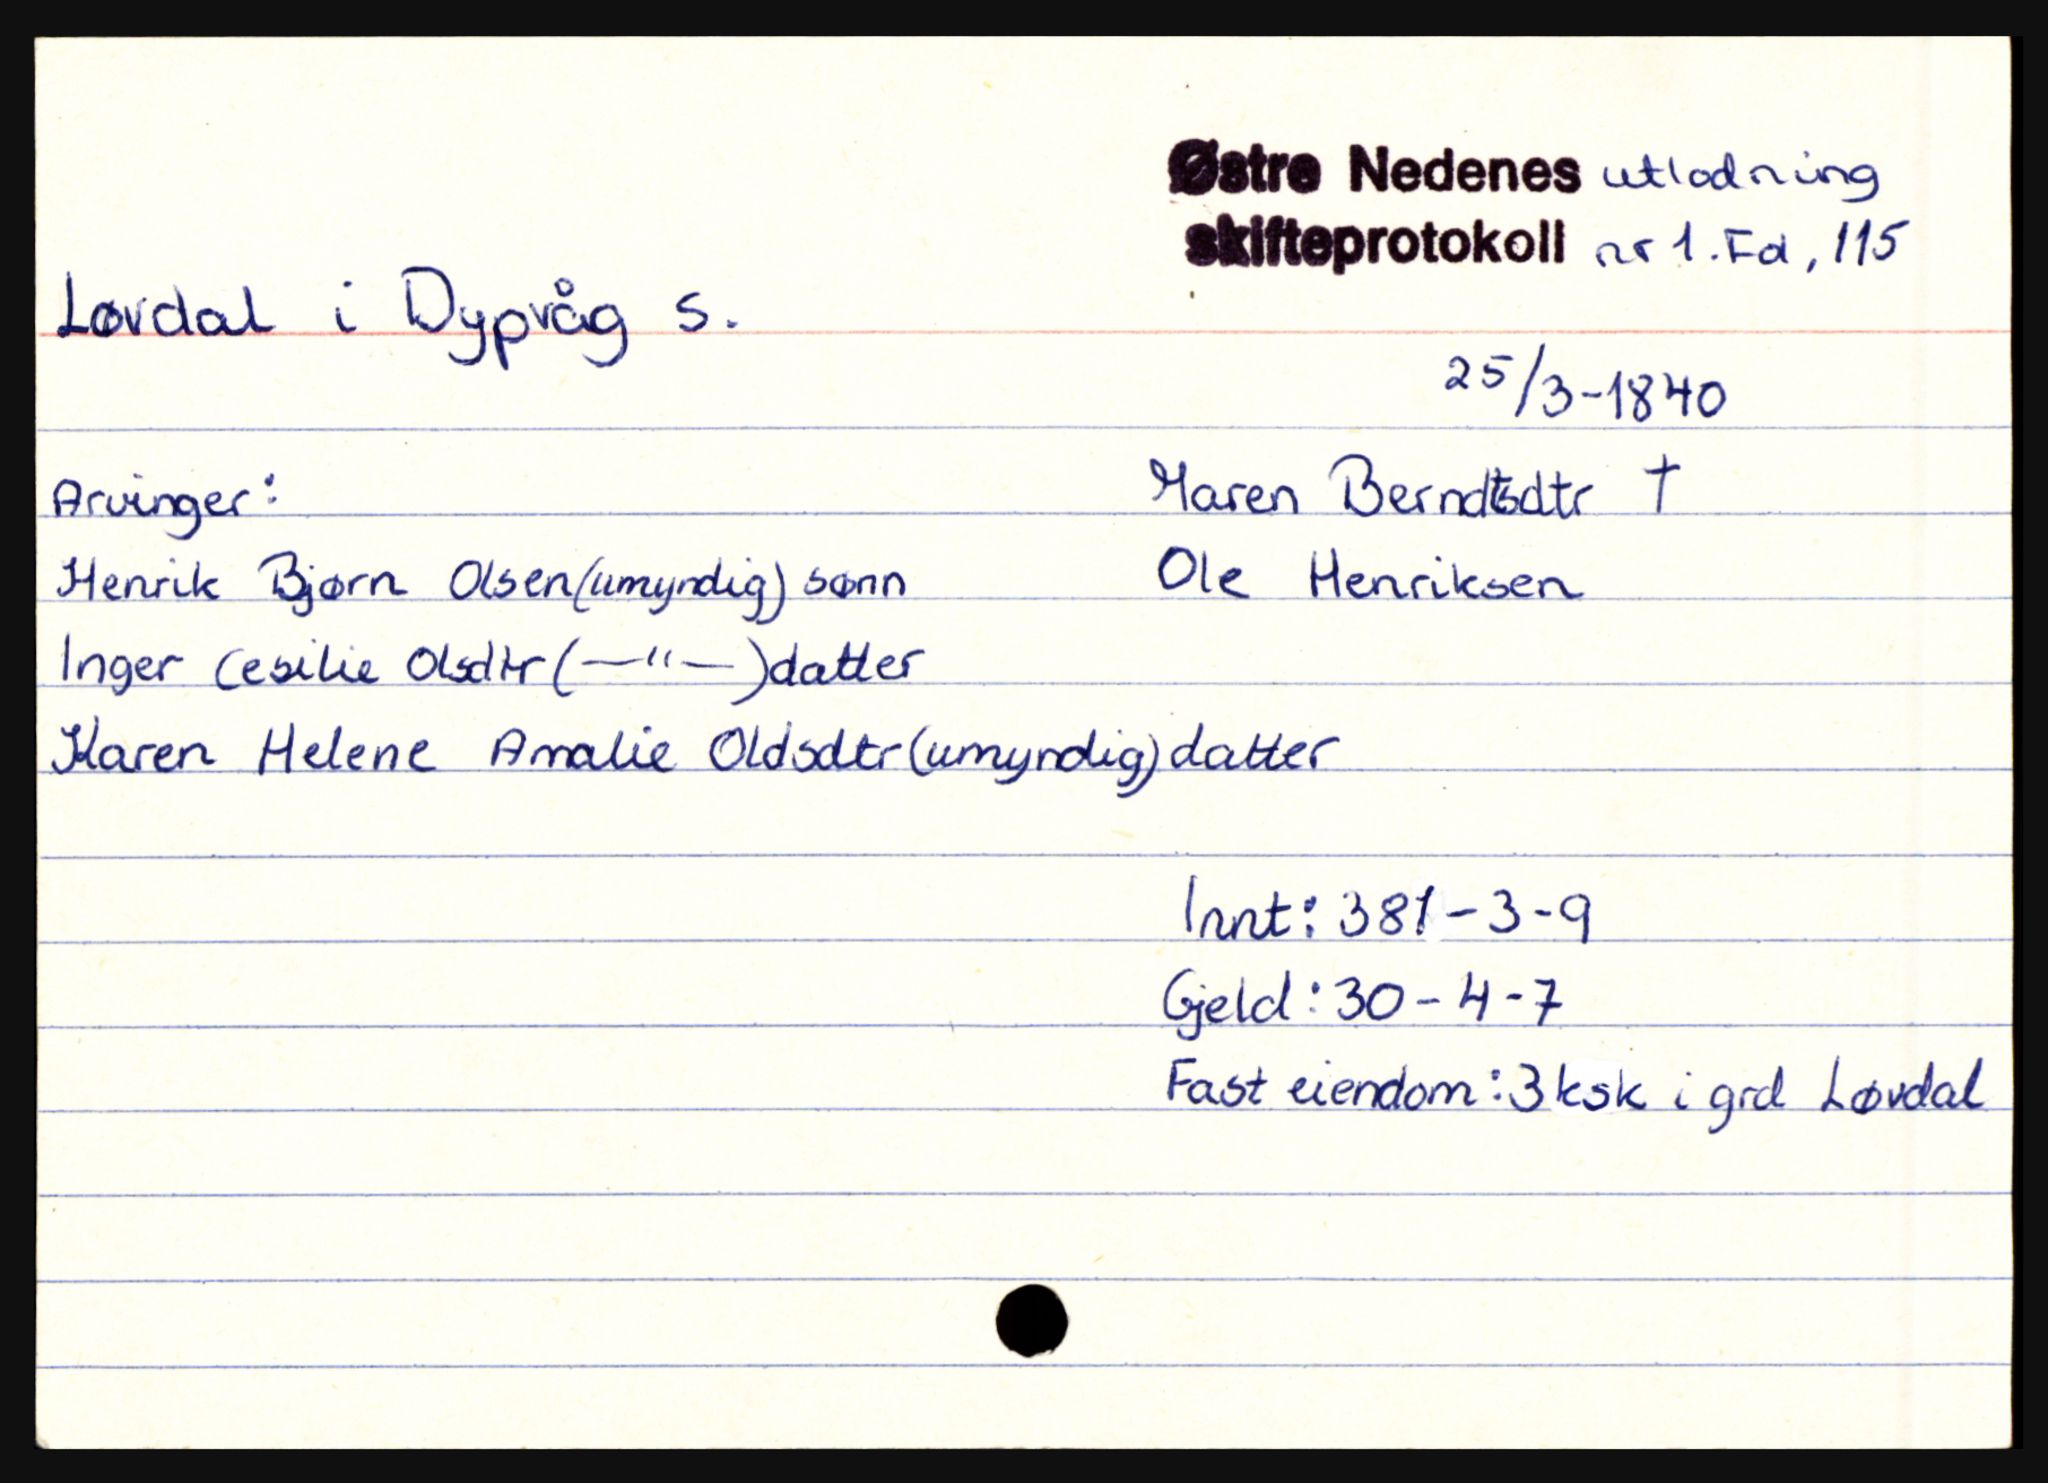 Østre Nedenes utlodning
skifteprotokoll nr 1. Fd, 115
Løvdal i Dypvåg s.
25/3-1840
Arvinger:
Maren Berndtsdtr †
Henrik Bjørn Olsen (umyndig) sønn
Ole Henriksen
Inger Cesilie Olsdtr (—"—) datter
Karen Helene Amalie Oldsdtr (umyndig) datter
Innt: 381-3-9
Gjeld: 30-4-7
Fast eiendom: 3 ksk i grd Løvdal